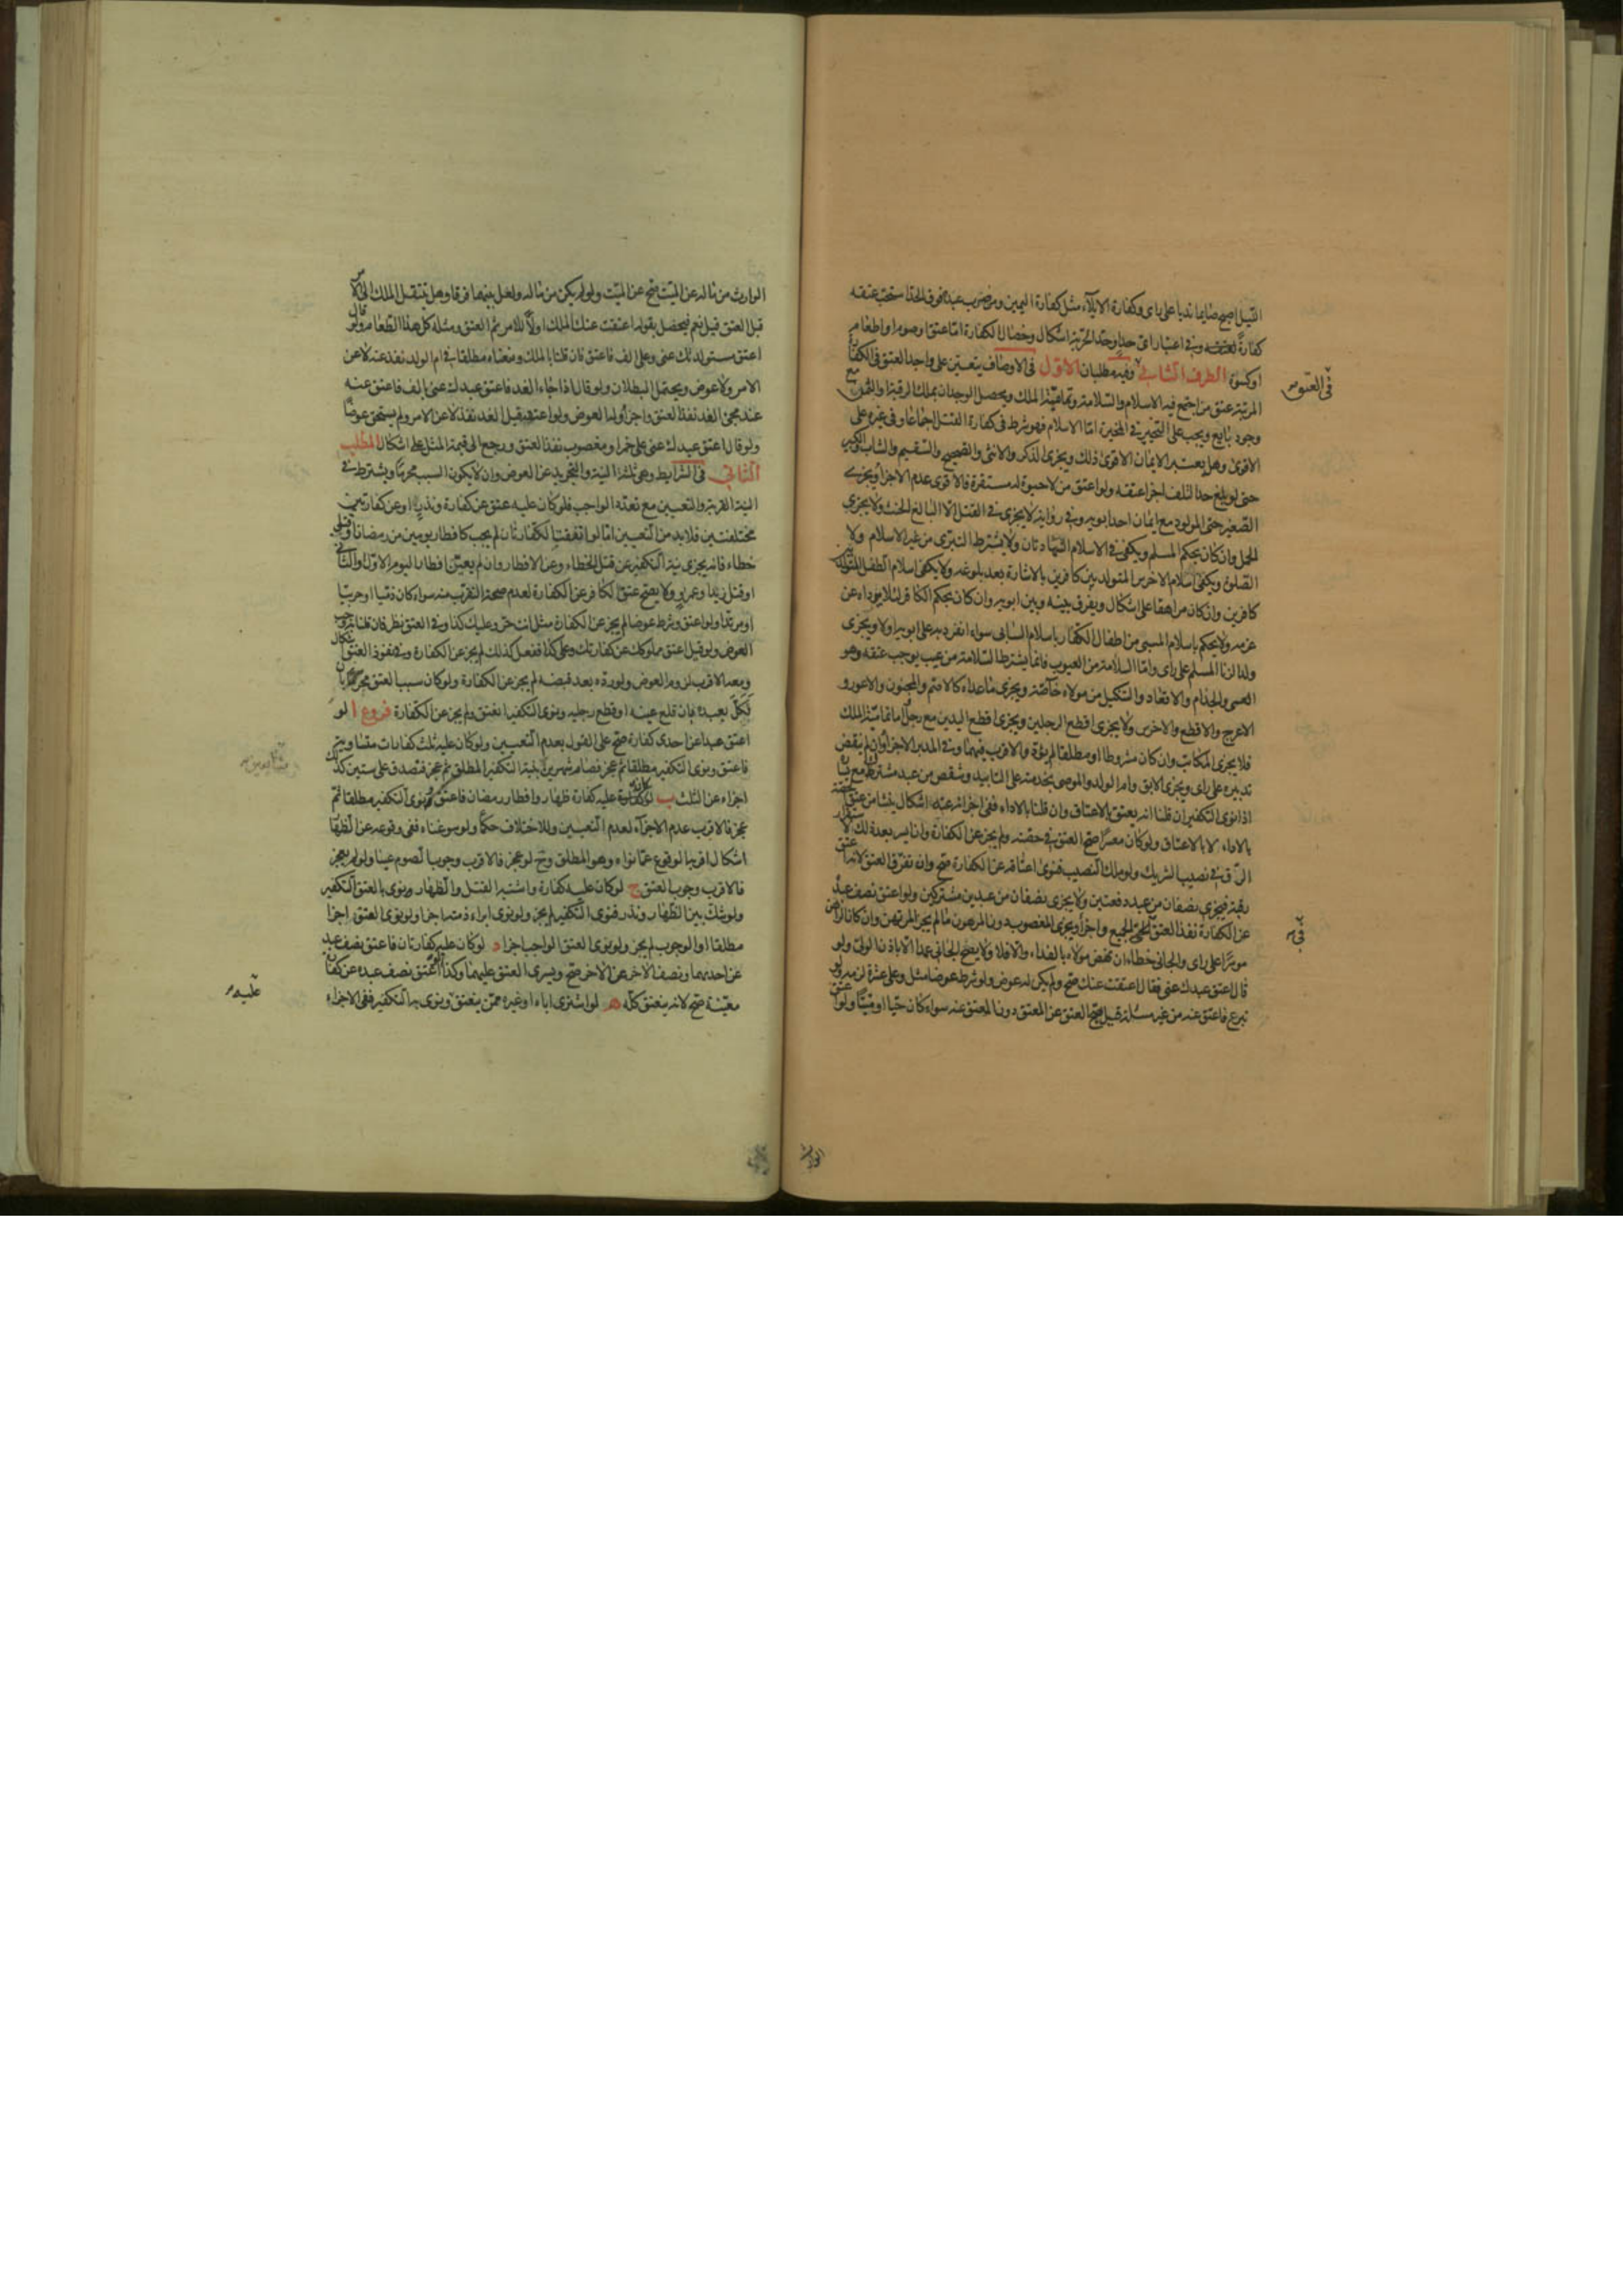 الليل اصبح صايما ندبا على راى وكفارة الايلاء مثل كفارة اليمين ومن ضرب عبده فوق الحد استحب عتقه
كفارة لعتقه وفى اعتبار اى حد او حد الحرية اشكال وخصال الكفارة اما عتق او صوم او اطعام
او كسوة الطرف الثانى وفيه مطلبان الاول فى الاوصاف يتعين على واجد العتق فى الكفارة
المرتبة عتق من اجتمع فيه الاسلام والسلامة وتمامية الملك ويحصل الوجدان بملك الرقبة او الثمن مع
وجود بايع ويجب على التخيير فى المخيرة اما الاسلام فهو شرط فى كفارة القتل اجماعا وفى غيره على
الاقوى وهل يعتبر الايمان الاقوى ذلك ويجزى الذكر والانثى والصحيح والسقيم والشاب والكبير
حتى لو بلغ حد التلف اجزأ عتقه ولو اعتق من لا حيوة له مستقرة فالاقوى عدم الاجزاء ويجزى
الصغير حتى المولود مع ايمان احد ابويه وفى رواية لا يجزى فى القتل الا البالغ الحنث ولا يجزى
الحمل وان كان بحكم المسلم ويكفى فى الاسلام الشهادتان ولا يشترط التبرى من غير الاسلام ولا
الصلوة ويكفى اسلام الاخرس المتولد بين كافرين بالاشارة بعد بلوغه ولا يكفى اسلام الطفل المتولد بين
كافرين وان كان مراهقا على اشكال ويفرق بينه وبين ابويه وان كان بحكم الكافر لئلا يرداه عن
عزمه ولا يحكم باسلام المسبى من اطفال الكفار باسلام السابى سواء انفرد به عن ابويه او لا ويجزى
ولد الزنا المسلم على راى واما السلامة من العيوب فانما يشترط السلامة من عيب يوجب عتقه وهو
العمى والجذام والاقعاد والتنكيل من مولاه خاصة ويجزى ما عداه كالاصم والمجنون والاعور و
الاعرج والاقطع والاخرس ولا يجزى اقطع الرجلين ويجزى اقطع اليدين مع رجل واما تمامية الملك
فلا يجزى المكاتب وان كان مشروطا او مطلقا لم يؤد والاقرب فيهما وفى المدبر الاجزاء وان لم ينقض
تدبيره على راى ويجزى الابق وام الولد والموصى بخدمته على التابيد وشقص من عبد مشترك مع يساره
اذا نوى التكفير ان قلنا انه يعتق بالاعتاق وان قلنا بالاداء ففى اجزائه عنه اشكال ينشا من عتق حصة
بالاداء لا بالاعتاق ولو كان معسرا صح العتق فى حصته ولم يجز عن الكفارة وان ايسر بعد ذلك لاستقرار
الرق فى نصيب الشريك ولو ملك النصيب فنوى اعتاقه عن الكفارة صح وان تفرق العتق لانه اعتق
رقبة فيجزى نصفان من عبد دفعتين ولا يجزى نصفان من عبدين مشتركين ولو اعتق نصف عبده
عن الكفارة نفذ العتق فى الجميع واجزأ ويجزى المغصوب دون المرهون ما لم يجز المرتهن وان كان الراهن
موسرا على راى والجانى خطاء ان نهض مولاه بالفداء والا فلا ولا يصح الجانى عمدا الا باذن الولى ولو
قال اعتق عبدك عنى فقال اعتقت عنك صح ولم يكن له عوض ولو شرط عوضا مثل وعلى عشرة لزمه ولو
تبرع فاعتق عنه من غير مسئلة قيل صح العتق عن المعتق دون المعتق عنه سواء كان حيا او ميتا ولو اعتق
فى العتق
فى
الوارث
الوارث من ماله عن الميت صح عن الميت ولو لم يكن من ماله ولعل بينهما فرقا وهل ينتقل الملك الى الآمر
قبل العتق قيل نعم فيحصل بقوله اعتقت عنك الملك اولا للامر ثم العتق ومثله كل هذا الطعام ولو قال
اعتق مستولدتك عنى وعلى الف فاعتق فان قلنا بالملك ومنعناه مطلقا فى ام الولد نفذ عنه لا عن
الامر ولا عوض ويحتمل البطلان ولو قال اذا جاء الغد فاعتق عبدك عنى بالف فاعتق عنه
عند مجئ الغد نفذ العتق واجزأ وله العوض ولو اعتقه قبل الغد نفذ لا عن الامر ولم يستحق عوضا
ولو قال اعتق عبدك عنى على خمر او مغصوب نفذ العتق ورجع الى قيمة المثل على اشكال المطلب
الثانى فى الشرايط وهى ثلثة النية والتجريد عن العوض وان لا يكون السبب محرما ويشترط فى
النية القربة والتعيين مع تعدد الواجب فلو كان عليه عتق عن كفارة ونذر او عن كفارتين
مختلفتين فلا بد من التعيين اما لو اتفقت الكفارتان لم يجب كافطار يومين من رمضان او قتلى
خطاء فانه يجزى نية التكفير عن قتل الخطاء وعن الافطار وان لم يعين افطار اليوم الاول او الثانى
او قتل زيد او عمرو ولا يصح عتق الكافر عن الكفارة لعدم صحة التقرب منه سواء كان ذميا او حربيا
او مرتدا ولو اعتق وشرط عوضا لم يجز عن الكفارة مثل انت حر وعليك كذا وفى العتق نظر فان قلنا به وجب
العوض ولو قيل اعتق مملوكك عن كفارتك وعلى كذا ففعل كذلك لم يجز عن الكفارة وفى نفوذ العتق اشكال
ومعه الاقرب لزوم العوض ولو رده بعد قبضه لم يجز عن الكفارة ولو كان سبب العتق محرما بان
نكل بعبده بان قلع عينه او قطع رجليه ونوى التكفير انعتق ولم يجز عن الكفارة فروع ا لو
اعتق عبدا عن احدى كفارة صح على القول بعدم التعيين ولو كان عليه ثلث كفارات متساوية
فاعتق ونوى التكفير مطلقا ثم عجز فصام شهرين بنية التكفير المطلق ثم عجز فتصدق على ستين كذلك
اجزاه عن الثلث ب لو كان عليه كفارة ظهار وافطار رمضان فاعتق ونوى التكفير مطلقا ثم
عجز فالاقرب عدم الاجزاء لعدم التعيين وللاختلاف حكما ولو سوغناه ففى وقوعه عن الظهار
اشكال اقربه الوقوع عما نواه وهو المطلق وح لو عجز فالاقرب وجوب الصوم عينا ولو لم يعجز
فالاقرب وجوب العتق ج لو كان عليه كفارة واشتبه القتل والظهار ونوى بالعتق التكفير
ولو شك بين الظهار ونذر فنوى التكفير لم يجز ولو نوى ابراء ذمته اجزأ ولو نوى العتق اجزا
مطلقا او الوجوب لم يجز ولو نوى العتق الواجب اجزا د لو كان عليه كفارتان فاعتق نصف عبد
عن احديهما ونصف الاخر عن الاخر صح ويسرى العتق عليهما وكذا لو اعتق نصف عبده عن كفارة
معينة صح لانه ينعتق كله ه لو اشترى اباه او غيره ممن ينعتق ونوى به التكفير ففى الاجزاء
متتابعين
عليه